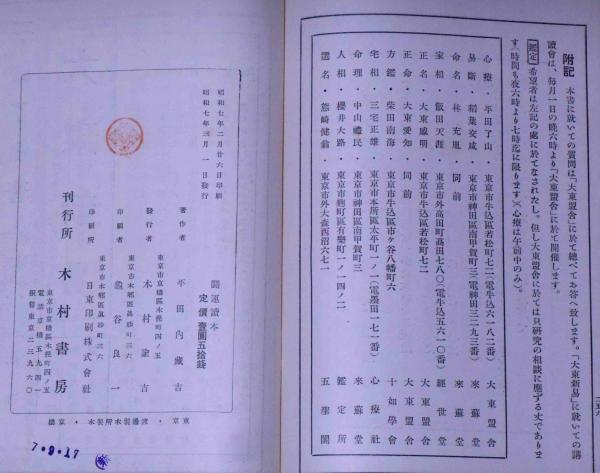 附記 本書に就いての質問は「大東盟舍」にて總べてお答へ致します。「大東新易」に就いての講
讀會は、毎月一日の晩六時より「大東盟舍」にて開催します。
鑑定 希望者は左記の處に於てなされたし。但し大東盟舍に於ては只研究の相談に應ずる丈でありま
す(時間も夜六時より七時迄に限ります)(心療は午前中のみ)。
心療・平田了山・東京市牛込區若松町七二(電牛込六一八二番) 大東盟舍
易斷・稲葉交成・東京市神田區南甲賀町三(電神田三二九三番) 來蘇堂
命名・林充胤・同前 來蘇堂
家相・飯田天涯・東京市外高田町高田七八〇(電牛込五六一〇番) 經世堂
正名・大東威明・東京市牛込區若松町七二 大東盟舍
正命・大東愛知・同前 大東盟舍
方鑑・柴田南海・東京市牛込區市ケ谷八幡町六 十如學會
宅相・三宅正雄・東京市本所區太平町一ノ一(電墨田一七一番) 心療社
命理・中山禮民・東京市神田區南甲賀町三 來蘇堂
人相・櫻井大路・東京市麹町區有樂町一ノ一四ノ二 鑑定所
選名・熊崎健翁・東京市外大森西沼六七一 五聖閣
昭和七年二月廿六日印刷
昭和七年三月一日發行
開運讀本
定價壹圓五拾錢
著作者 平田内藏吉
東京市京橋區木挽町四ノ五
發行者 木村諭吉
東京市本郷區眞砂町三六
印刷者 龜谷良一
東京市本郷區眞砂町三六
印刷所 日東印刷株式會社
刊行所 木村書房
東京市京橋區木挽町四ノ五
電話京橋五九四一
振替東京二三九六〇
東京・渡邊製本所製本・京橋
7・9・17